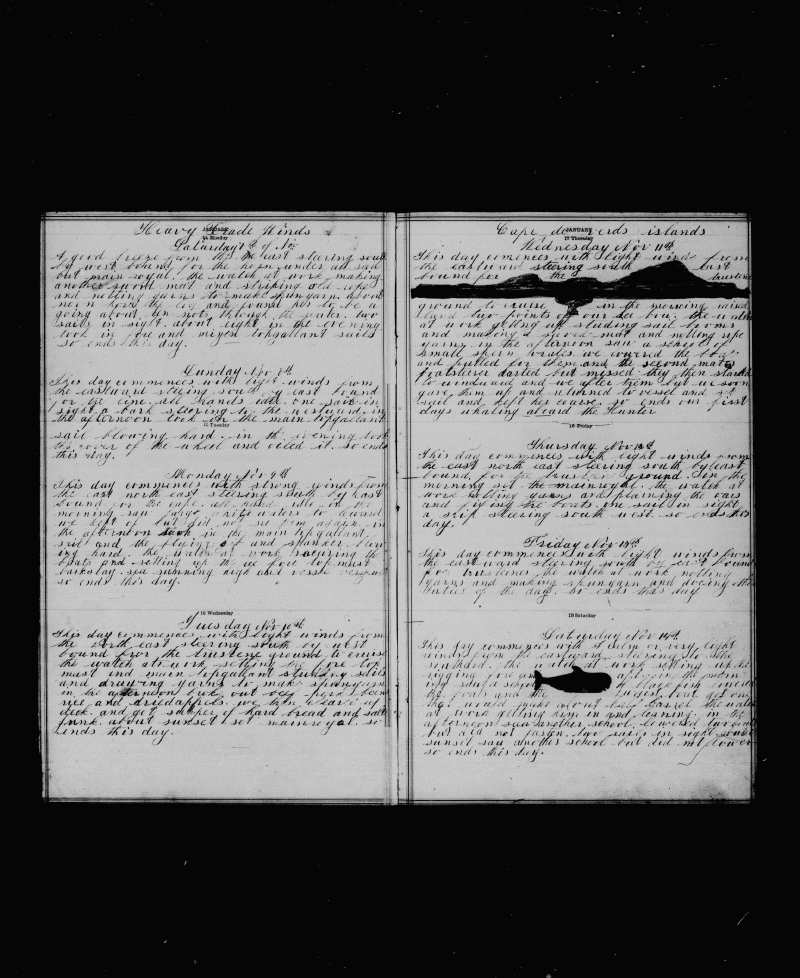 Heavy Trade Winds
JANUARY
14 Monday
Saturday 7th of Nov
A good breeze from the east staring south
by west bound for the under all sail
but main royal. the watch at work making
another sword mat and striping old rope
and noting yarns to make spunyarn about
neon hove the log and found her to be a
going about ten nots through the water. two
sails in sight. about eight in the evening
took in fore and mizen topgallant sails
so ends this day.
Sunday Nov 8th
This day commences with light winds from
the eastward steering south by east bound
for cape one sail in
sight a bark steering to the westward. in
the afternoon took in the main topgallant
15 Tuesday
sail blowing hard. in the evening took
the cover of the wheel and oiled it. so ends
this day.
Monday Nov 9th
This day commences with strong winds from
the east north east steering south by east
bound for the cape in the
morning saw large white waters to leward
we kept of but did not see them again. in
the afternoon took in the main topgallant
sail and the flying jib and spanker. blow
ing hard. the watch at work repairing the
boats and setting up the lee fore topmast
backstay. sea running high and
so ends this day.
16 Wednesday
Tuesday Nov 10th
This day commences with light winds from
the north east steering south by west
bound for the ground to cruise
the watch at work setting up fore top
mast and main topgallant studding sails
and drawing yarns to make spunyarn
in the afternoon
and driedappels. we have cleared
deck. and got supper of hard bread and salt
junk. about sunset set mainroyal. so
ends this day.
Cape deverds islands
JANUARY
17 Thursday
Wednesday Nov 11th
This day comences with light winds from
the eastward steering south east
bound for the
ground to cruise in the morning raised
land two points of our lee bow. the watch
at work getting up studing sail booms
and making a sword mat and notting rope
yarns. in the afternoon saw a school of
small sperm whales. we lowered the boats
and pulled for them and the second mates
boatsteerer darted but missed. they then started
to windward and we after them but we soon
gave them up and returned to vessel and set
sail and kept her course. so ends our first
days whaling aboard the Hunter
18 Friday
Thursday Nov 12th
This day commences with light winds from
the east north east steering south by east
bound for the ground. in the
morning set the mainroyal. the watch at
work notting yarns and plaining the oars
and fixing the boats. one sail in sight
a ship steering south west. so ends this
day.
Friday Nov 13th
This day commences with light winds from
the eastward steering south by east bound
for the watch at work notting
yarns and making spunyarn and doeing other
duties of the day. so ends this day
19 Saturday
Saturday Nov 14th
This day commences with very light
winds from the eastward steering to the
southard. the watch at work setting up the
rigging fore and aft. in the
raised a school of black fish lowered
the boats and the got one
that would make about half barrel. the watch
at work getting him in and cleaning. in the
afternoon saw another school. lowered two boats
but did not fasten. two sails in sight.
sunset saw another school but did not lower
so ends this day.